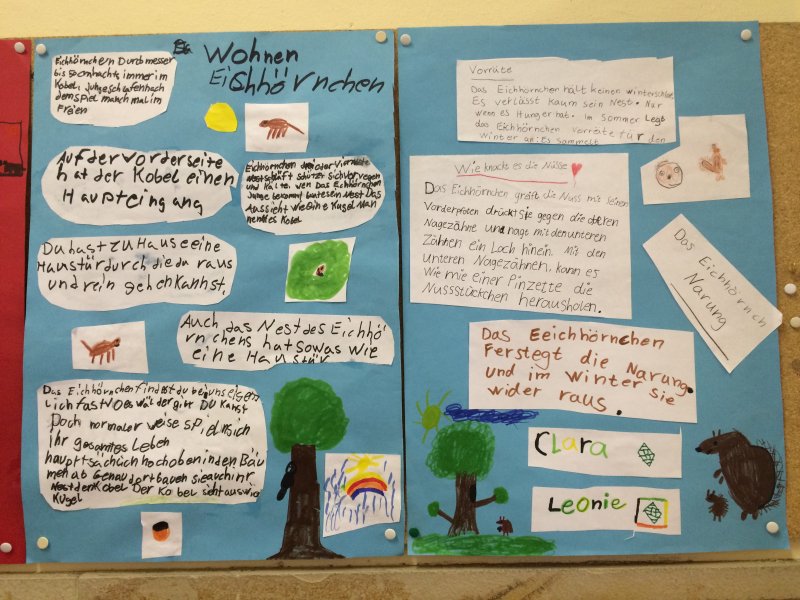 Wohnen
Eichhörnchen
Eichhörnchen Durbmesser
bis
immer im
Kobel. Junge schlafen nach
dem Spiel manchmal im
Freien
Auf der Vorderseite
hat der Kobel einen
Haupteingang
Eichhörnchen
Nest schläft schützer sich vor regen
und Kälte. wen Das Eichhörnchen
Junge bekommt
Nest Das
Aussicht wie eine Kugel Man
nent es Kobel
Du hast zu Hause eine
Haustür durch die du raus
und rein gehen kannst.
Auch das Nest des Eichhö
rnchens hat sowas wie
eine Haustür
Das Eichhörnchen findest du bei uns eigen
lich fast wo es wälder gibt DU kanst
Doch normaler weise spielt sich
ihr gesamtes Leben
hauptsächlich hoch oben in den Bäu
men ab Genau dort bauen sie auch ihr
Nest den Kobel Der Kobel sieht aus wie
Kugel
Vorräte
Das Eichhörnchen hält keinen winterschlaf.
Es verlässt kaum sein Nest. Nur
wenn es Hunger hat. im Sommer Legt
das Eichhörnchen Vorräte für den
winter an. Es sammelt
Wie knackt es die Nüsse
Das Eichhörnchen greift die Nuss mit seinen
Vorderpfoten drückt sie gegen die oberen
Nagezähne und nagt mit den unteren
Zähnen ein Loch hinein. Mit den
unteren Nagezähnen, kann es
Wie mie einer Pinzette die
Nussstückchen herausholen.
Das Eichhörnch
Narung
Das Eeichhörnchen
Ferstegt die Narung.
und im Winter sie
wider raus.
Clara
Leonie